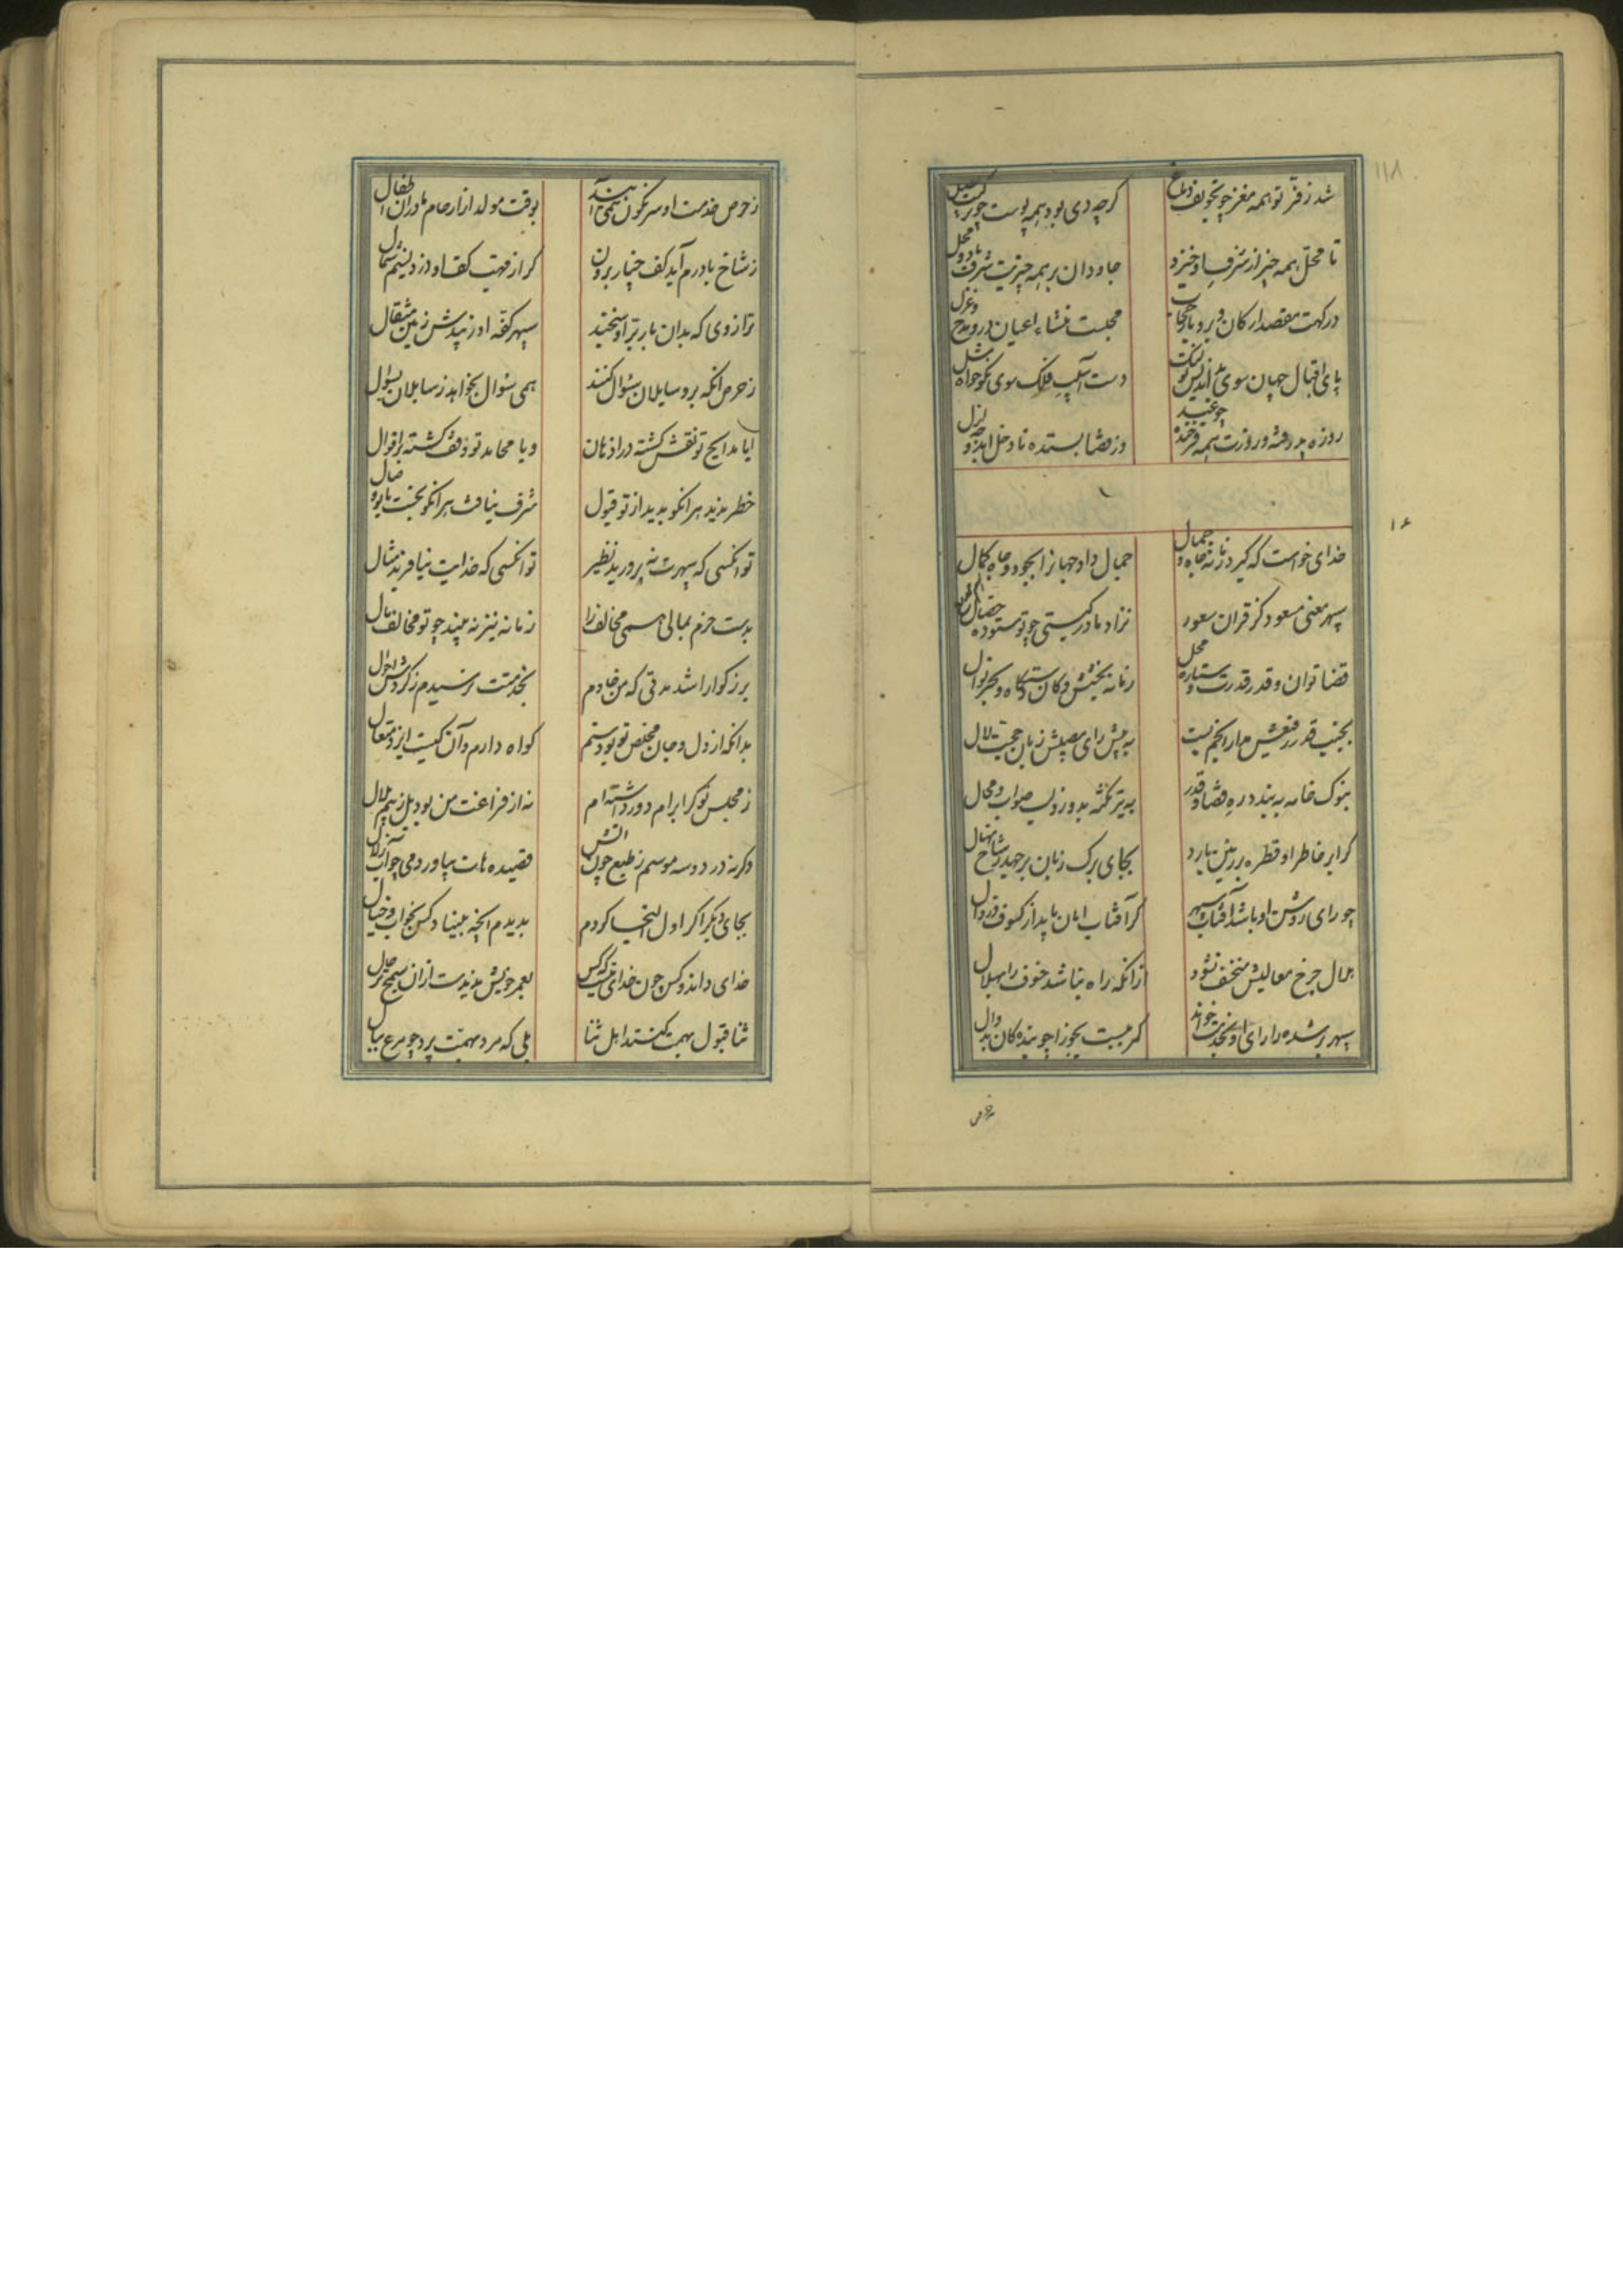 ۱۱۸
شد ز فر تو همه مغز چو تجویف دماغ
گرچه دی بود همه پوست چو
تا محل همه چیز از شرف او خیزد
جاودان بر همه چیزیت شرف باد و محل
درگهت مقصد ارکان و برو بار حجاب
مجلست منشاء اعیان و درو مدح و غزل
پای اقبال جهان سوی بداندیش تو لنگ
دست آسیب فلک سوی نکوخواه شل
روزه پذرفته و روزت همه فرخنده چو عید
وز قضا بستده تا دخل ابد
۱۶
خدای خواست که گیرد زمانه جاه و جمال
جمال داد جهانرا بجود و جاه و کمال
سپهر معنی مسعود کز قران سعود
نزاد مادر گیتی چو تو ستوده خصال
قضا توان و قدر قدرت و ستاره محل
زمانه بخشش و کان دستگاه و بحر نوال
بجنب قدر رفیعش مدار انجم پست
به پیش رای مصیبش زبان حجت لال
بنوک خامه ببندد ره قضا و قدر
به تیر نکته بدوزد لب صواب و محال
گر ابر خاطر او قطره بر زمین بارد
بجای برگ زبان بر جهد ز شاخ نهال
چو رای روشن او باشد آفتاب سپهر
گر آفتاب امان یابد از کسوف و زوال
هلال چرخ معالیش منخسف نشود
از آنکه راه نباشد خسوف را بهلال
سپهر بر شده را رای او بخدمت خواند
کمر ببست بجوزا چو بندگان بدوال
ز حرص
ز حرص خدمت او سرنگون همی آیند
بوقت مولد از ارحام مادران اطفال
ز شاخ بادرم آید کف چنار برون
گر از مهب کف او وزد نسیم شمال
ترازوی که بدان بار بر او سنجند
سپهر کفه او زیبدش زمین مثقال
ز حرص آنکه برو سایلان سئوال کنند
همی سئوال بخواهد ز سایلان بسئوال
ایا مدایح تو نقش گشته در اذهان
و یا محامد تو وقف گشته بر اقوال
خطر ندید هر آنکو ندید از تو قبول
شرف نیافت هر آنکو نجست با تو وصال
تو آنکسی که سپهرت نه پرورید نظیر
تو آنکسی که خدایت نیافرید مثال
بدست حزم بمالی همی مخالف را
زمانه نیز نه بیند چو تو مخالف مال
بزرگوارا شد مدتی که من خادم
بخدمتت نرسیدم ز گردش احوال
بدانکه از دل و جان مخلص تو بودستم
گواه دارم و آن کیست ایزد متعال
ز مجلس تو گر ابرام دور داشته ام
نه از فراغت من بود بل ز بیم ملال
وگرنه در دو سه موسم ز طبع چون آتش
قصیده هات بیاوردمی چو آب زلال
بجای دیگر اگر اول التجا کردم
بدیدم آنچه مبیناد کس بخواب و خیال
خدای داند و کس چون خدای نیست که کس
بعمر خویش ندیدست از آن سمج تر حال
ثنا قبول بهمت کنند اهل ثنا
بلی که مرد بهمت پرد چو مرغ ببال